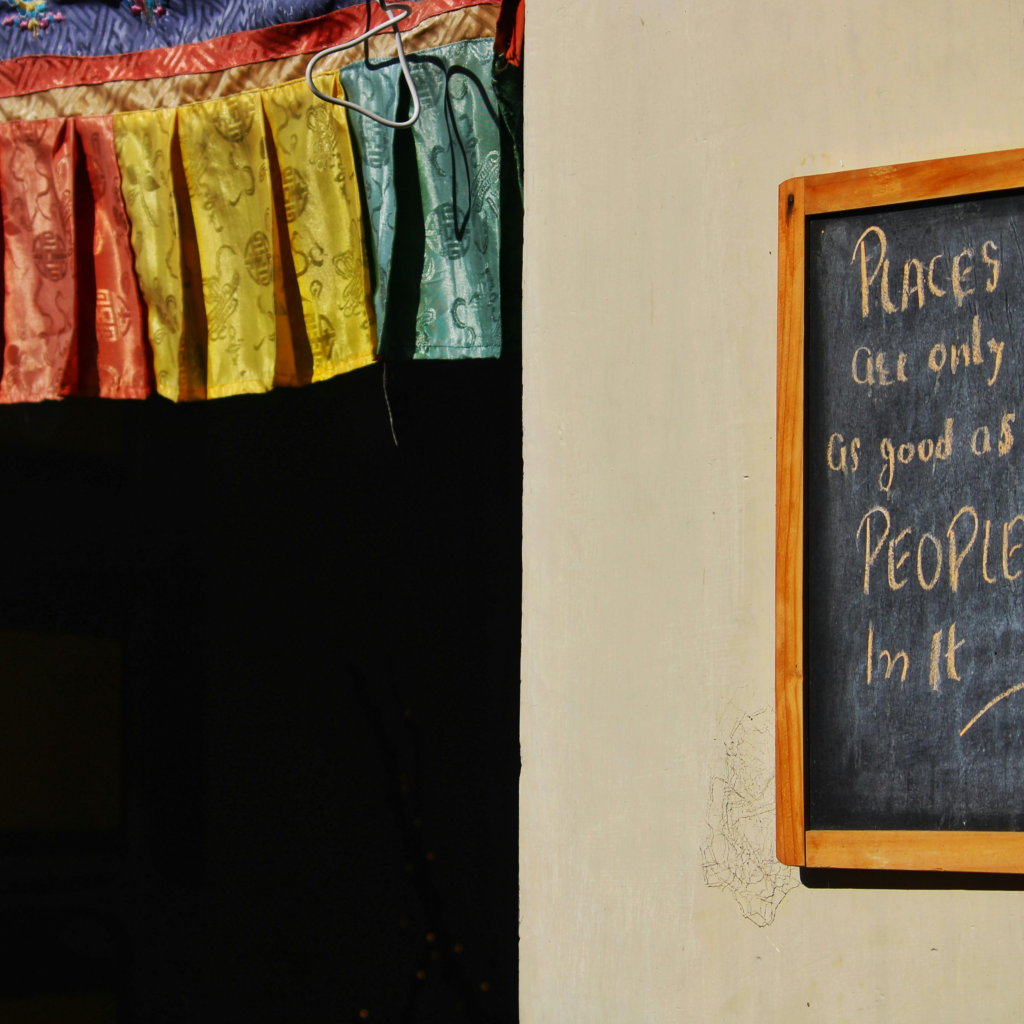 PLACES
are only
as good as
PEOPLE
In It